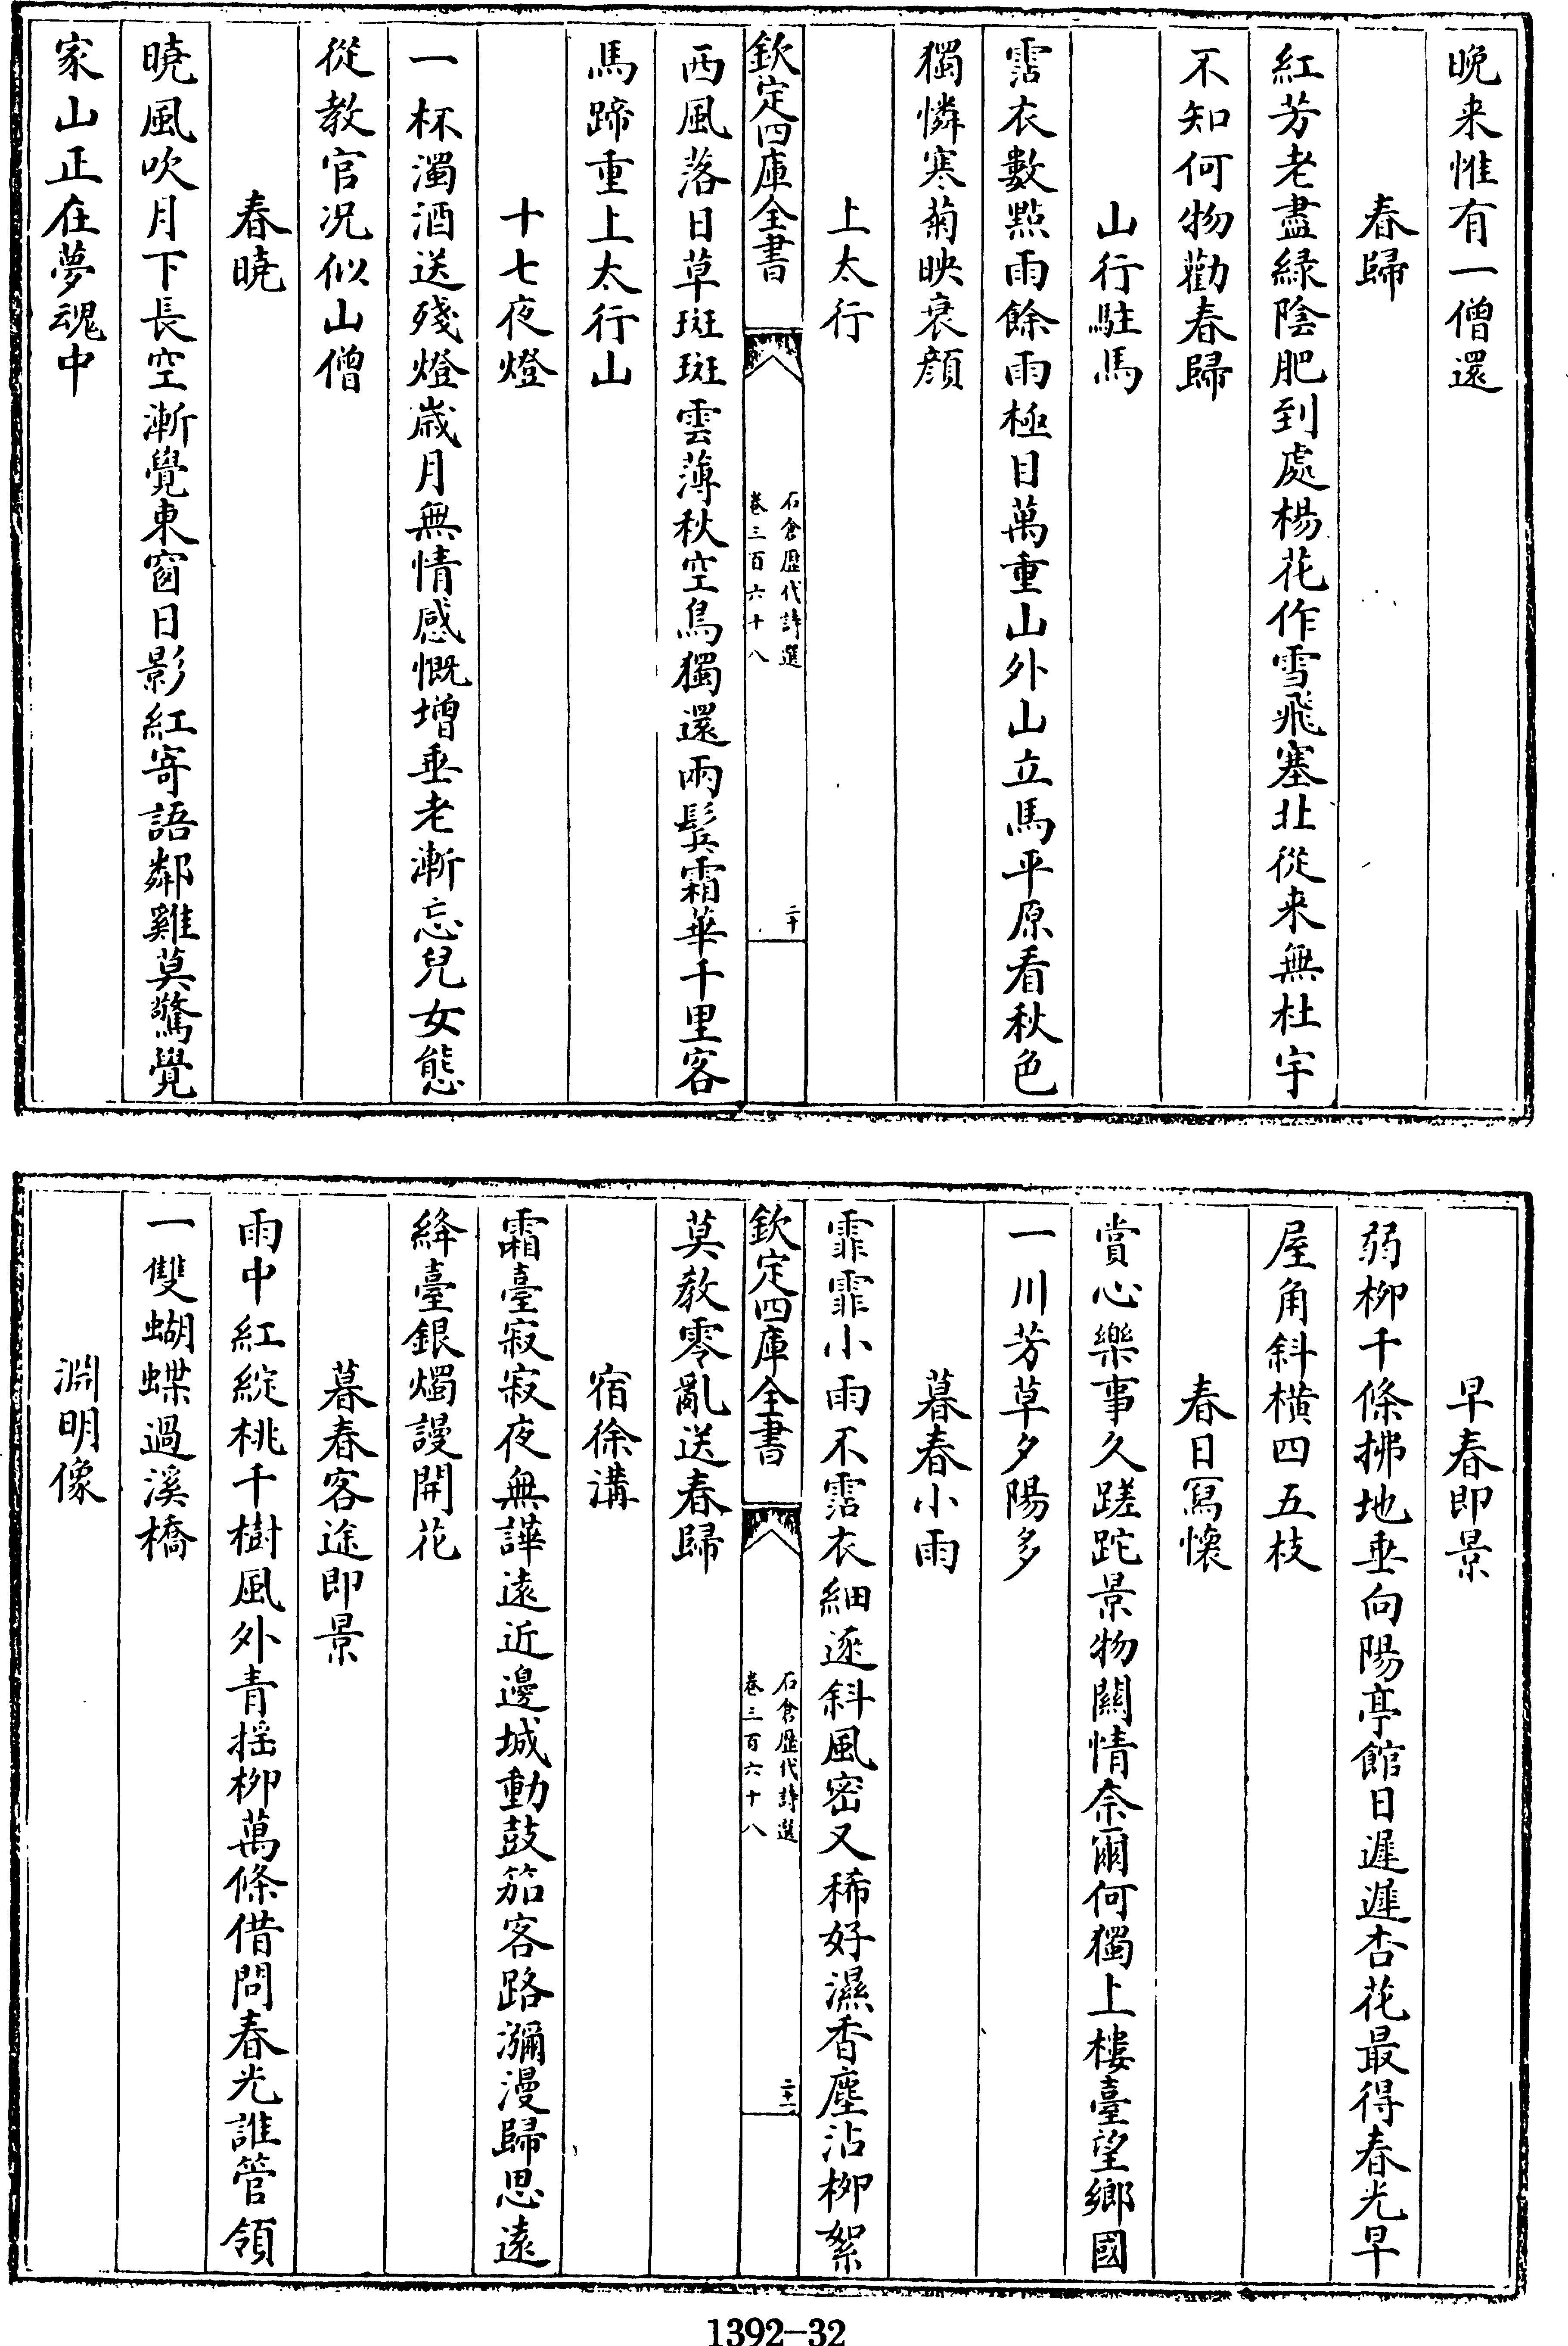 晚来惟有一僧還
春歸
紅芳老盡緑陰肥到處楊花作雪飛塞北從来無杜宇
不知何物勸春歸
山行駐馬
霑衣數點雨餘雨極目萬重山外山立馬平原看秋色
獨憐寒菊映衰顔
上太行
欽定四庫全書
石倉歴代詩選
卷三百六十八
二十
西風落日草斑斑雲薄秋空鳥獨還兩鬂霜華千里客
馬蹄重上太行山
十七夜燈
一杯濁酒送殘燈歲月無情感慨增垂老漸忘兒女態
從教官况似山僧
春曉
曉風吹月下長空漸覺東窗日影紅寄語鄰雞莫驚覺
家山正在夢魂中
早春即景
弱柳千條拂地垂向陽亭館日遲遲杏花最得春光早
屋角斜横四五枝
春日寫懐
賞心樂事久蹉跎景物關情奈爾何獨上樓臺望鄉國
一川芳草夕陽多
暮春小雨
霏霏小雨不霑衣細逐斜風密又稀好濕香塵沾柳絮
欽定四庫全書
石倉歴代詩選
卷三百六十八
二十一
莫教零亂送春歸
宿徐溝
霜臺寂寂夜無譁遠近邊城動鼓笳客路瀰漫歸思遠
絳臺銀燭謾開花
暮春客途即景
雨中紅綻桃千樹風外青揺柳萬條借問春光誰管領
一雙蝴蝶過溪橋
淵明像
1392-32